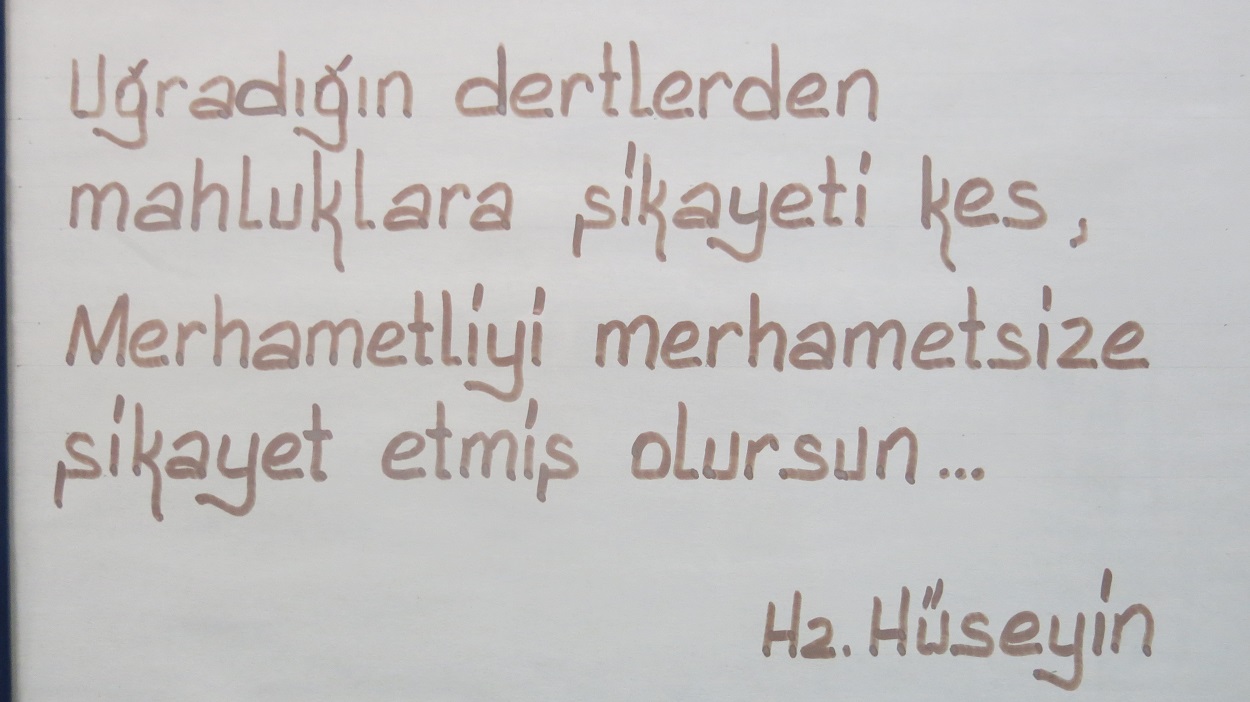 Uğradığın dertlerden
mahluklara şikayeti kes,
Merhametliyi merhametsize
şikayet etmiş olursun...
Hz. Hüseyin